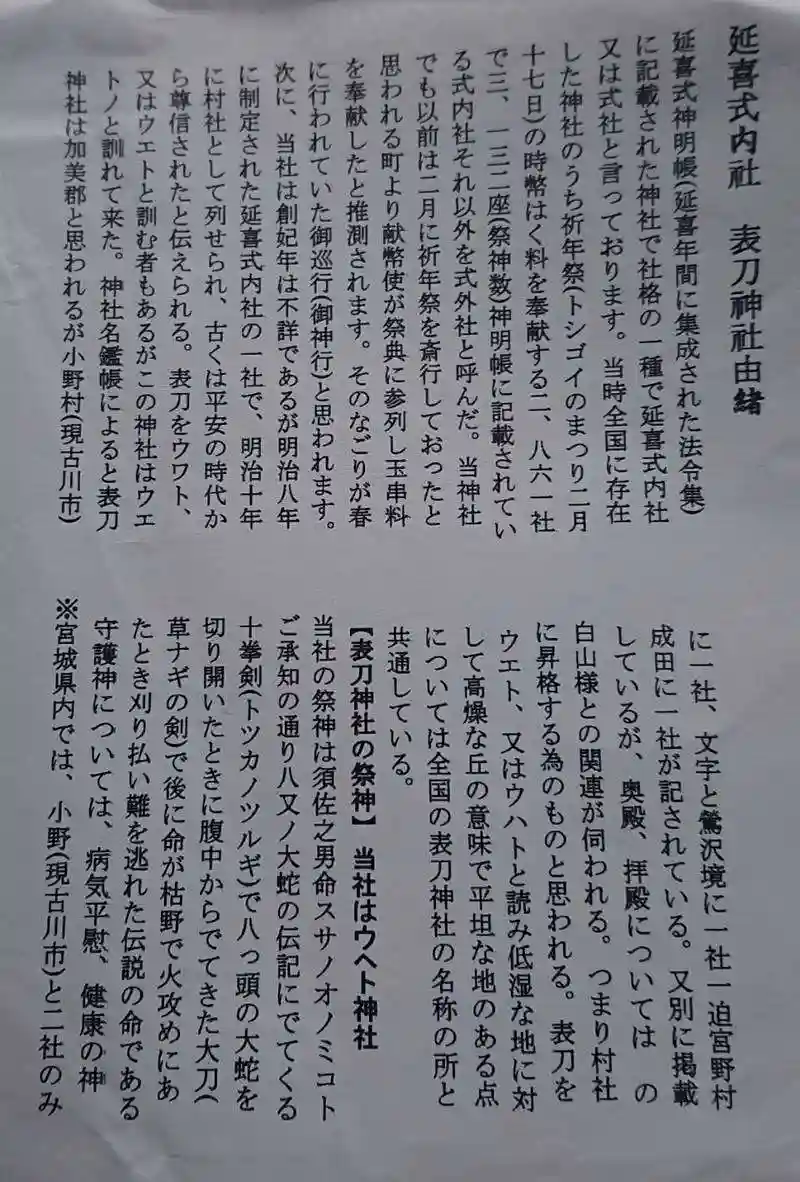 延喜式内社　表刀神社由緒
延喜式神明帳(延喜年間に集成された法令集)
に記載された神社で社格の一種で延喜式内社
又は式社と言っております。当時全国に存在
した神社のうち祈年祭(トシゴイのまつり二月
十七日)の時幣はく料を奉献する二、八六一社
で三、一三二座(祭神数)神明帳に記載されてい
る式内社それ以外を式外社と呼んだ。当神社
でも以前は二月に祈年祭を斎行しておったと
思われる町より献幣使が祭典に参列し玉串料
を奉献したと推測されます。そのなごりが春
に行われていた御巡行(御神行)と思われます。
次に、当社は創妃年は不詳であるが明治八年
に制定された延喜式内社の一社で、明治十年
に村社として列せられ、古くは平安の時代か
ら尊信されたと伝えられる。表刀をウワト、
又はウエトと訓む者もあるがこの神社はウエ
トノと訓れて来た。神社名鑑帳によると表刀
神社は加美郡と思われるが小野村(現古川市)
に一社、文字と鶯沢境に一社一迫宮野村
成田に一社が記されている。又別に掲載
しているが、奥殿、拝殿については　の
白山様との関連が伺われる。つまり村社
に昇格する為のものと思われる。表刀を
ウエト、又はウハトと読み低湿な地に対
して高燥な丘の意味で平坦な地のある点
については全国の表刀神社の名称の所と
共通している。
【表刀神社の祭神】当社はウヘト神社
当社の祭神は須佐之男命スサノオノミコト
ご承知の通り八又ノ大蛇の伝記にでてくる
十拳剣(トツカノツルギ)で八っ頭の大蛇を
切り開いたときに腹中からでてきた大刀(
草ナギの剣)で後に命が枯野で火攻めにあ
たとき刈り払い難を逃れた伝説の命である
守護神については、病気平慰、健康の神
※宮城県内では、小野(現古川市)と二社のみ